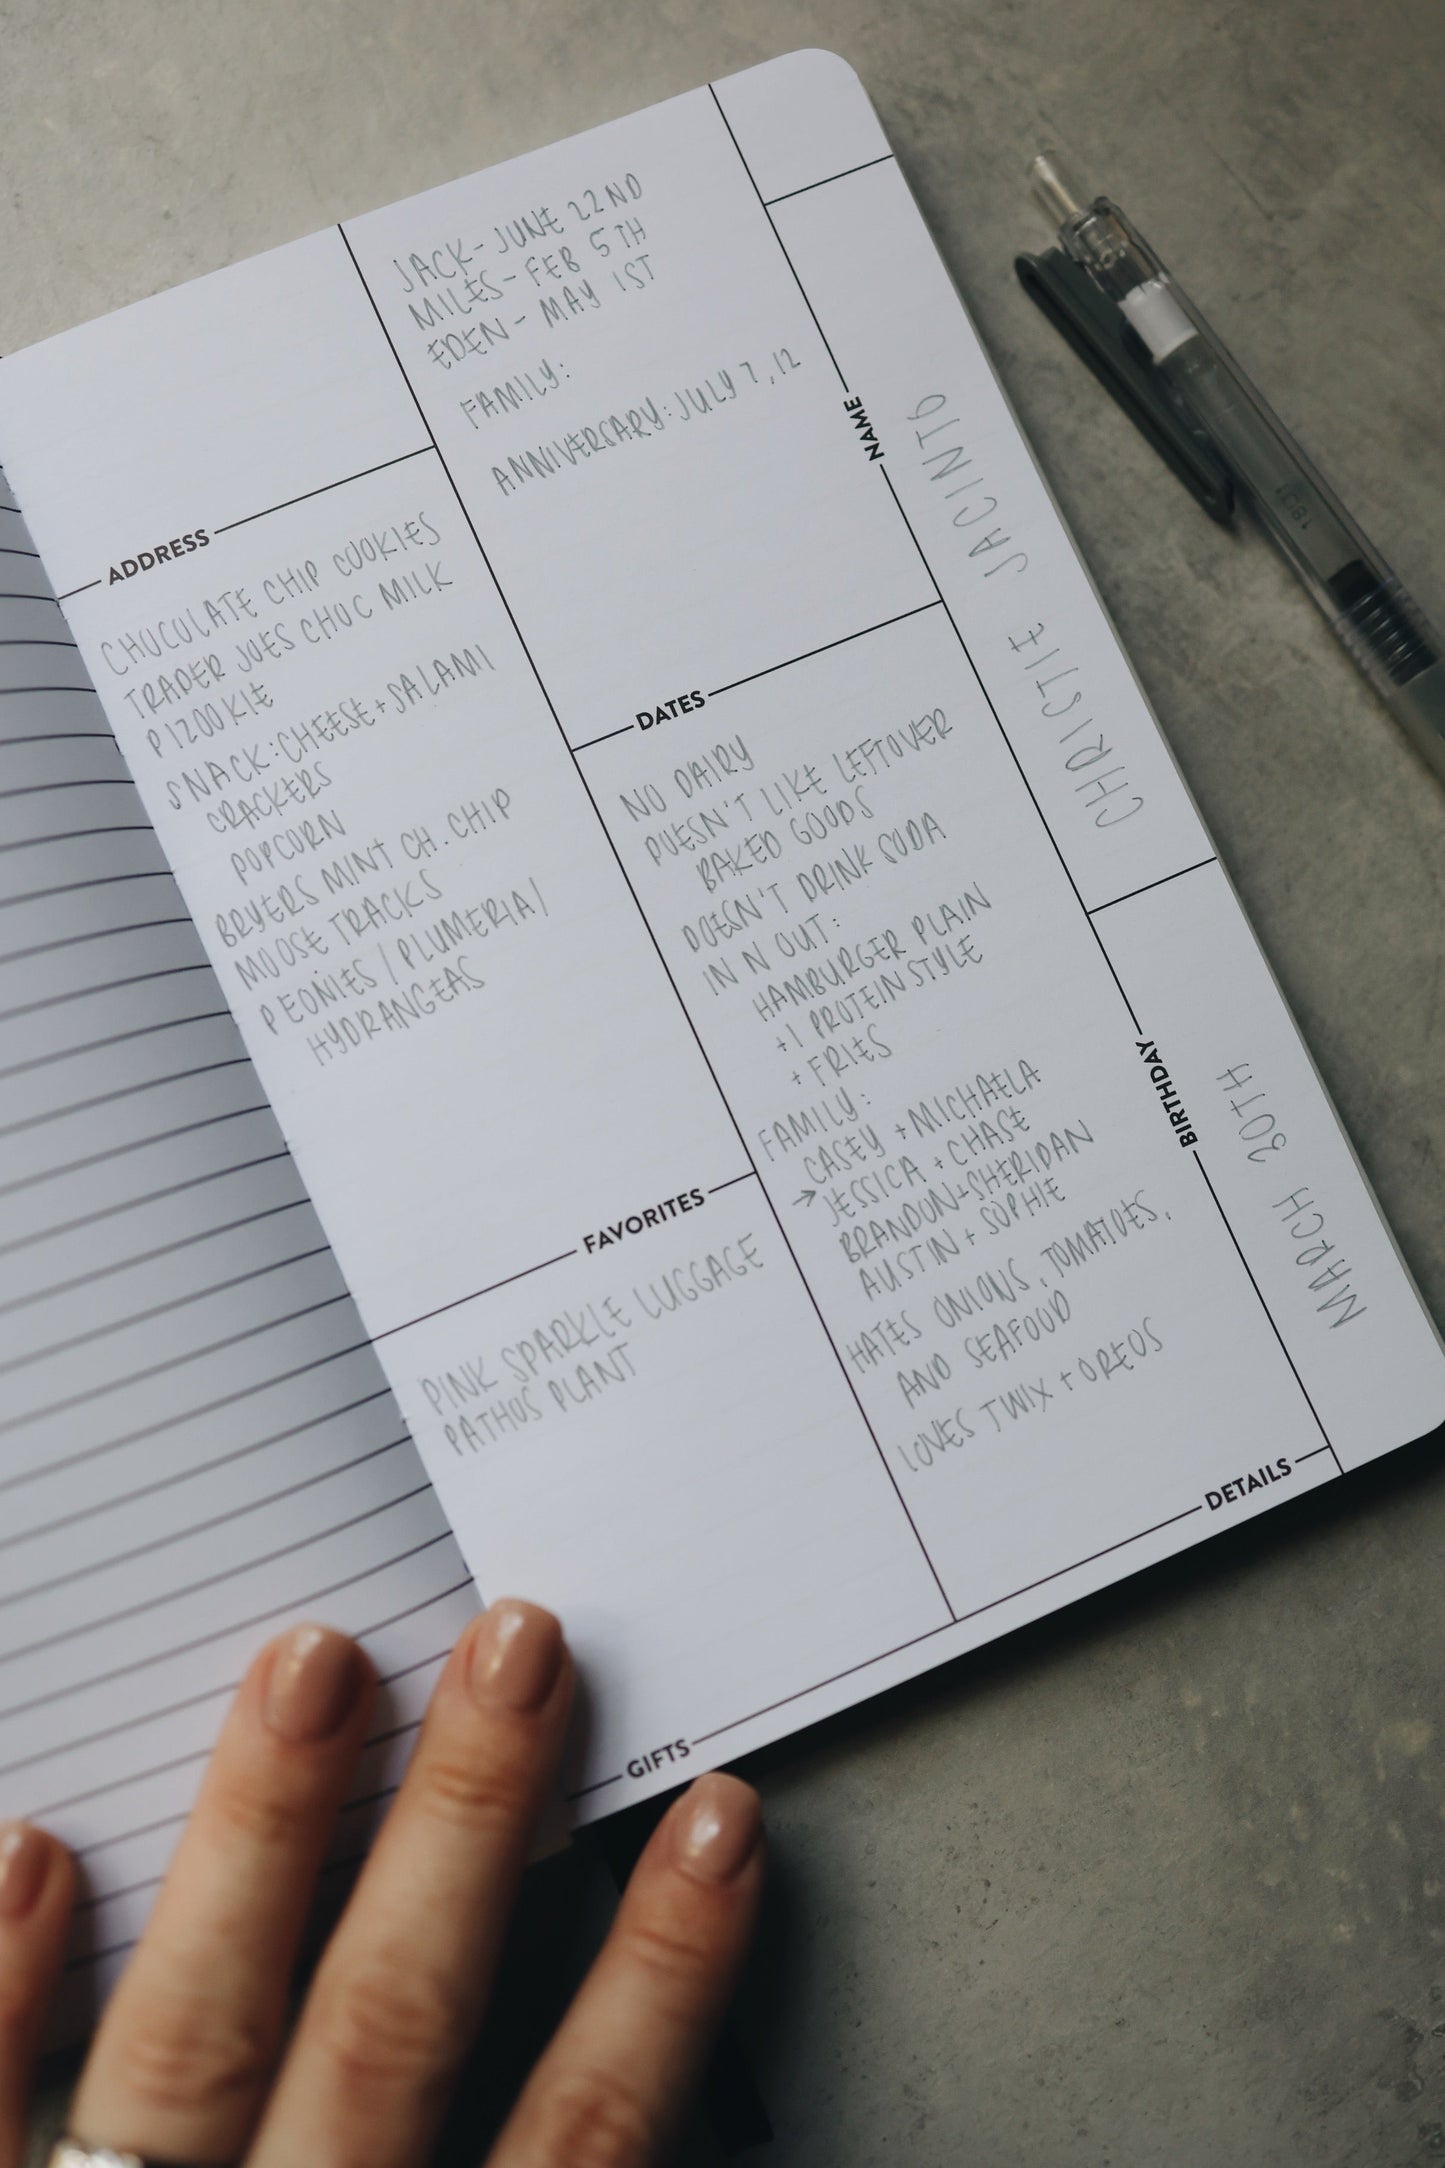 NAME
CHRISTIE JACINTO
BIRTHDAY
MARCH 30TH
ADDRESS
JACK - JUNE 22ND
MILES - FEB 5TH
EDEN - MAY 1ST
FAMILY:
ANNIVERSARY: JULY 7, 12
DATES
CHOCOLATE CHIP COOKIES
TRADER JOES CHOC MILK
PIZOOKIE
SNACK: CHEESE + SALAMI
CRACKERS
POPCORN
BRYERS MINT CH. CHIP
MOOSE TRACKS
PEONIES / PLUMERIA /
HYDRANGEAS
FAVORITES
NO DAIRY
DOESN'T LIKE LEFTOVER
BAKED GOODS
DOESN'T DRINK SODA
IN N OUT:
HAMBURGER PLAIN
+1 PROTEIN STYLE
+ FRIES
FAMILY:
CASEY + MICHAELA
→ JESSICA + CHASE
BRANDON + SHERIDAN
AUSTIN + SOPHIE
HATES ONIONS, TOMATOES,
AND SEAFOOD
LOVES TWIX + OREOS
DETAILS
PINK SPARKLE LUGGAGE
PATHOS PLANT
GIFTS